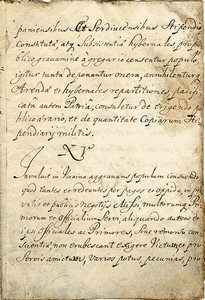 paniensibus Et Serdiucensibus Stipendio
Constituta, atq Subsistentia hybernales pu
blico gravamine a gregario censentur populo
igitur tanta deponantur onera, annihilentur
Arendæ et hybernales repartitiones, padi
cata autem Patria, consuletur de erigendo pu
blico ærario, et de quantitate Copiarum Sti
pendiarij militis.
XV
Involuit in Ucraina aggravans populum consuetudo
quod tantes et redeuntes per pagos et oppida, in
privatis et parum Negotijs Missi, multorum Pri
morum et Officialium Servi, aliquando autem et
ipsi Officiales ac Primores, Puerorum con
scientia, non erubescant exigere Victum, pro
Servis amictum, varios potus, pecunias, pro